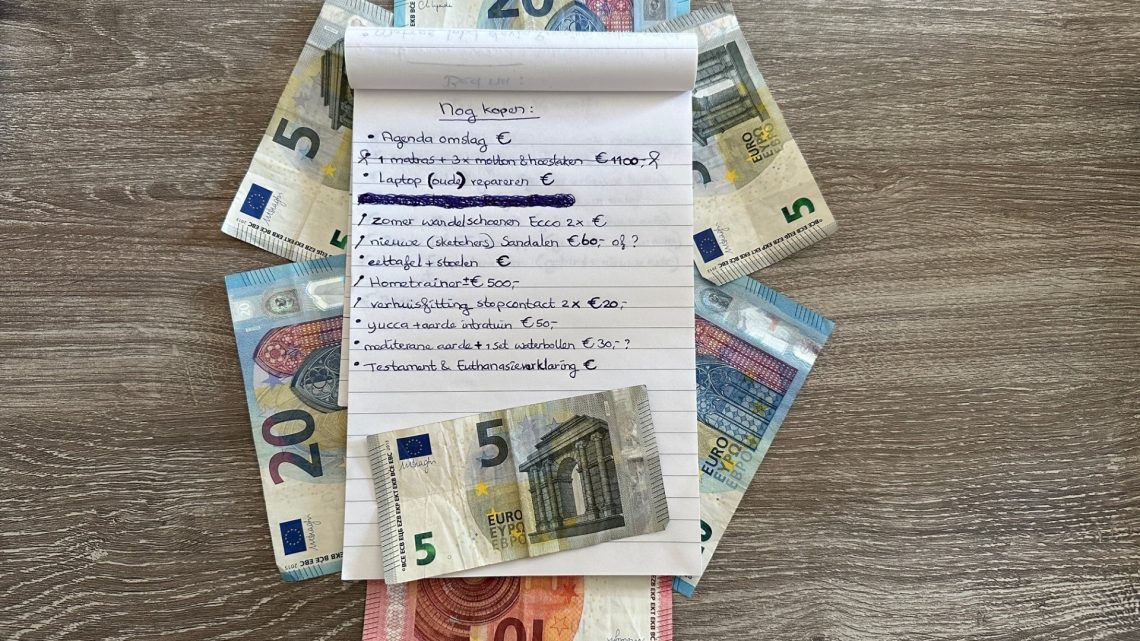 20
Nog kopen:
• Agenda omslag €
1 matras + 3x molton & hoeslaken €1100,-
• Laptop (oude) repareren €
zomer wandelschoenen Ecco 2x €
nieuwe (sketchers) Sandalen €60,- of ?
• eettafel + stoelen €
Hometrainer ± € 500,-
verhuisfitting stopcontact 2x €20,-
• yucca + aarde intratuin €50,-
• mediterane aarde + 1 set waterbollen € 30,- ?
• Testament & Euthanasieverklaring €
5
5
EURO
ΕΥΡΩ
ЕВРО
BCE ECB ЕЦБ EZB EKP EKT EKB BCE EBC
5
5
EURO
5
20
EURO
ΕΥΡΩ
ЕВРО
10